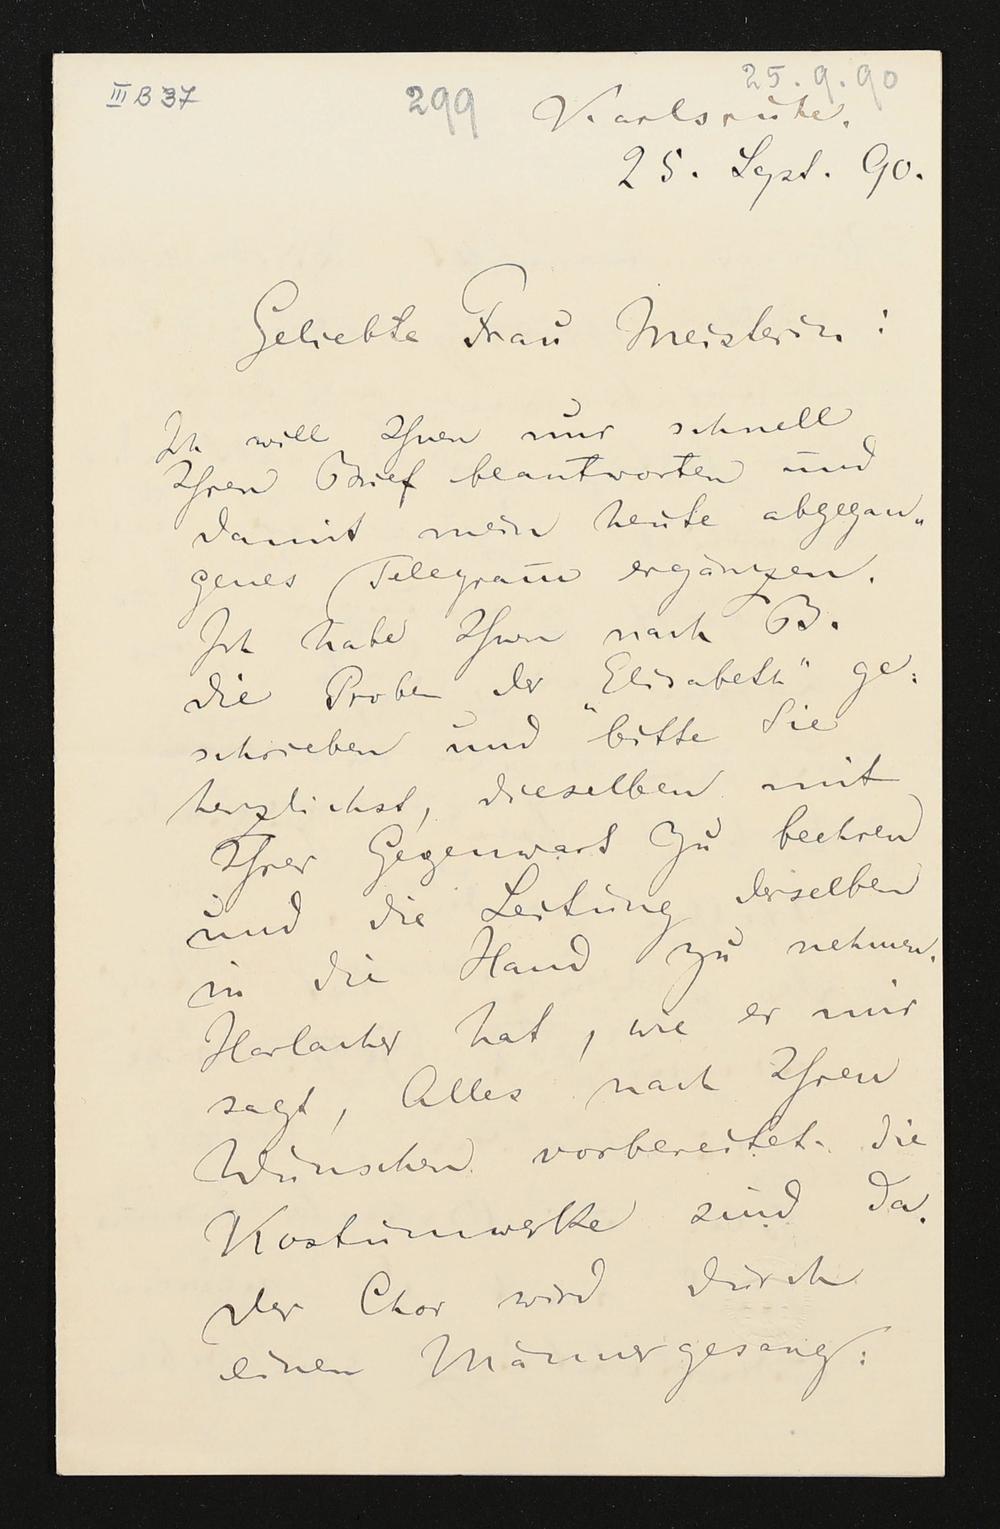 III B 37
299
25.9.90
Karlsruhe.
25. Sept. 90.
Geliebte Frau Meisterin:
Ich will Ihnen nur schnell
Ihren Brief beantworten und
damit mein heute abgegan„
genes Telegram ergänzen.
Ich habe Ihnen nach B.
die Proben der „Elisabeth" ge:
schrieben und bitte Sie
herzlichst, dieselben mit
Ihrer Gegenwart zu beehren
und die Leitung derselben
in die Hand zu nehmen.
Harlacher hat, wie er mir
sagt, Alles nach Ihren
Wünschen vorbereitet. die
Kostümwerke sind da.
der Chor wird durch
einen Männergesang: